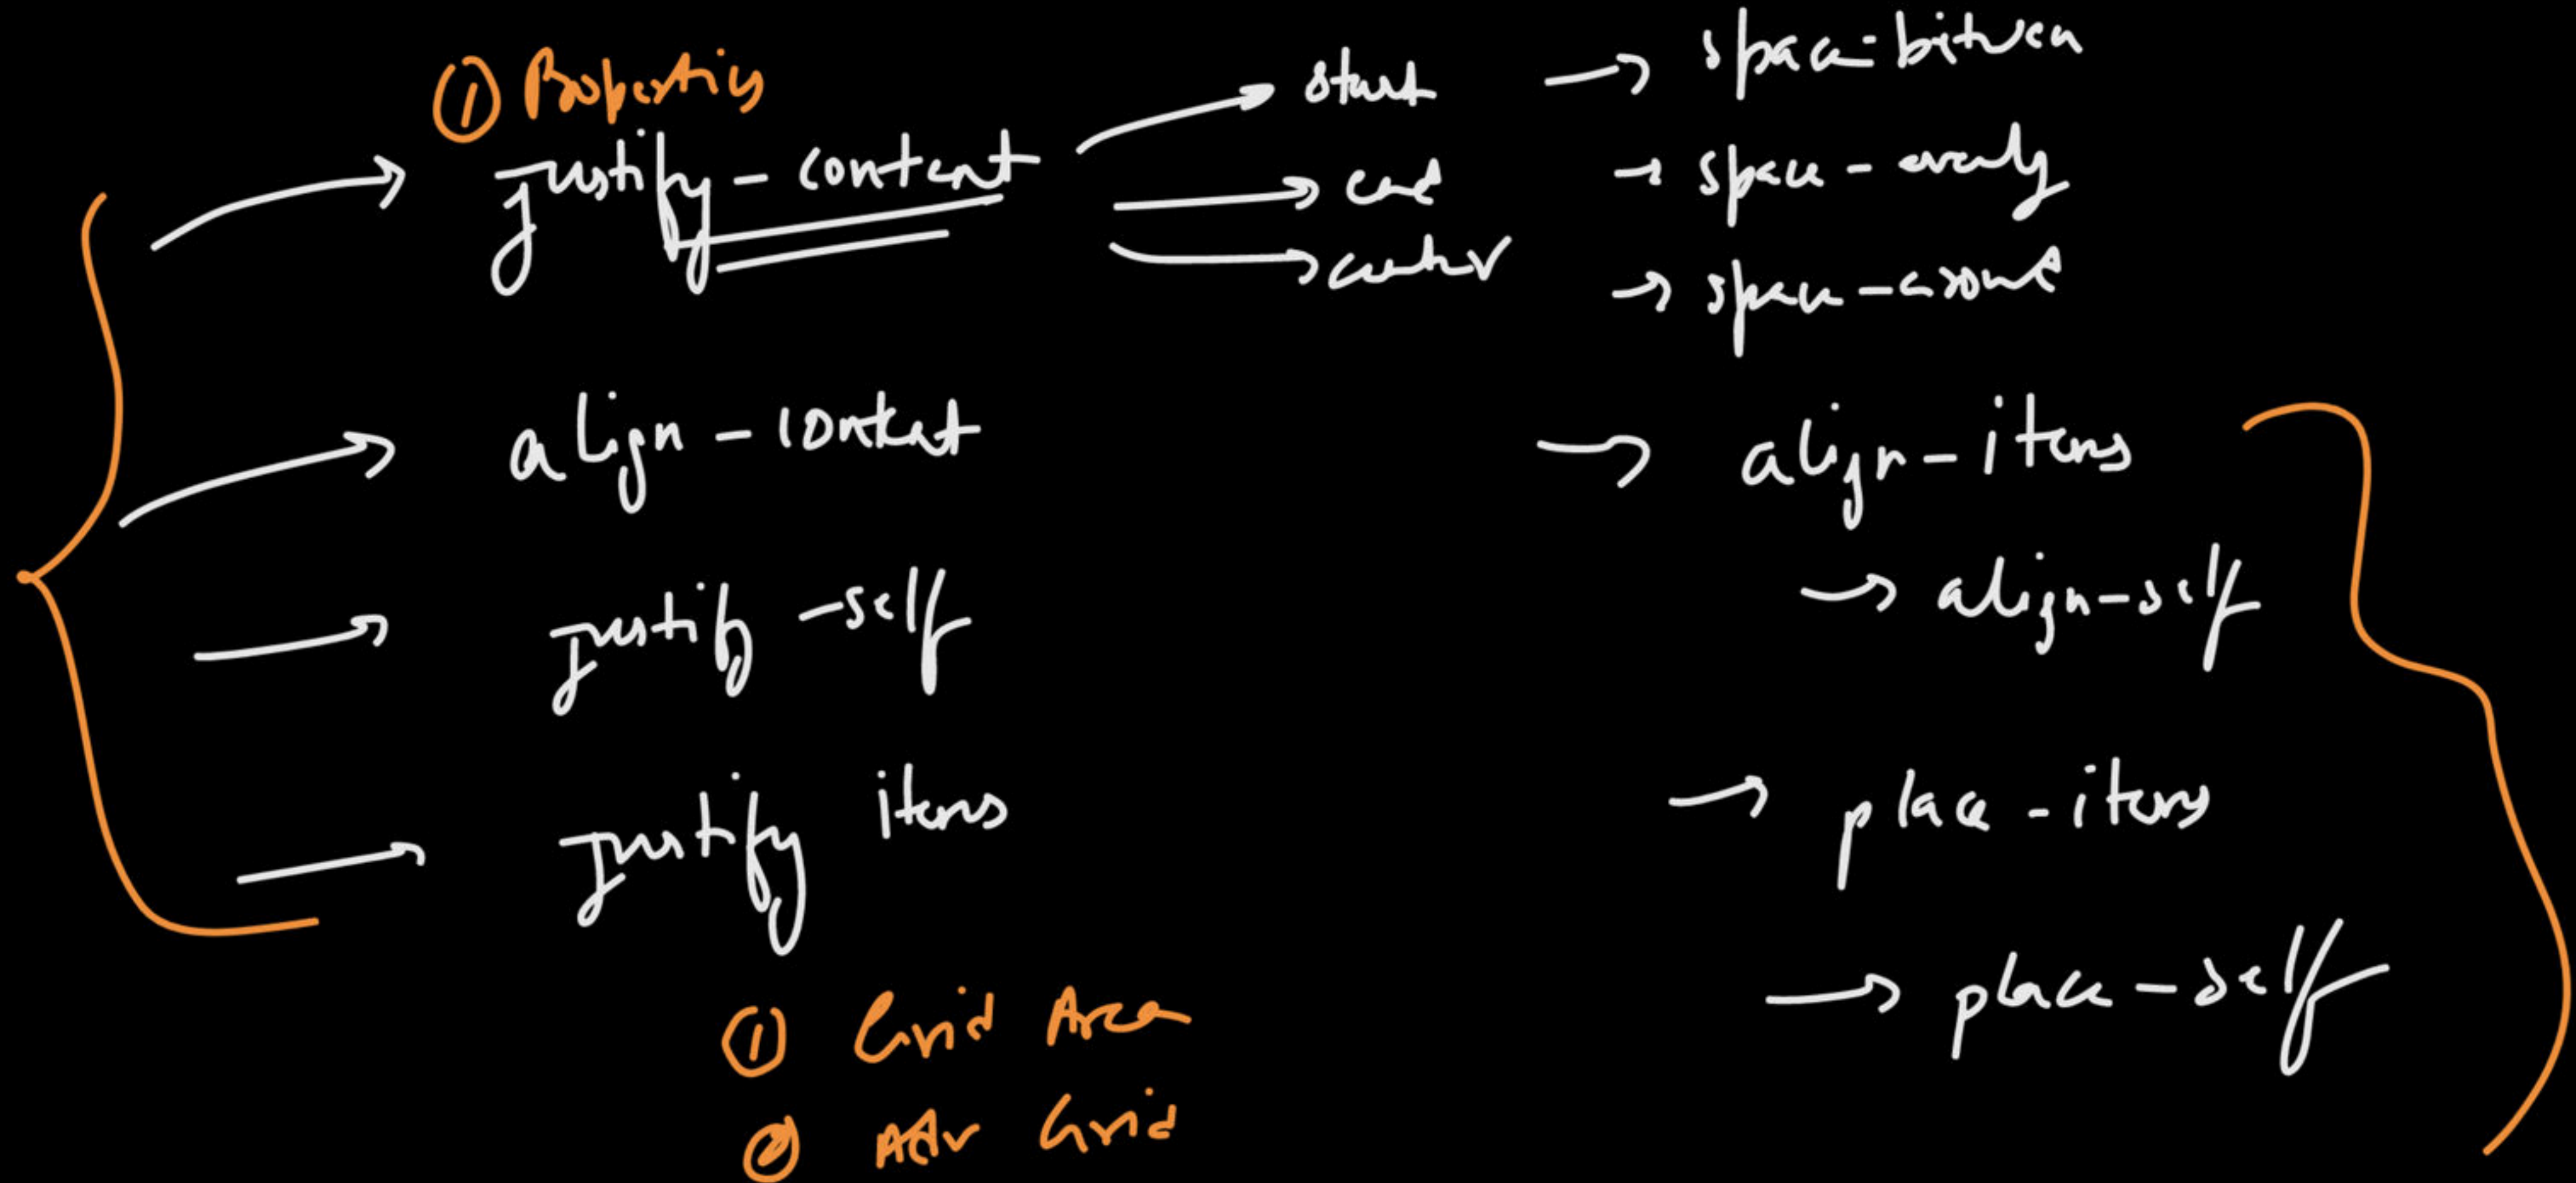 ① Properties
justify-content
start
end
center
space-between
space-evenly
space-around
align-content
align-items
align-self
justify-self
justify items
place-items
place-self
① Grid Area
② Adv Grid